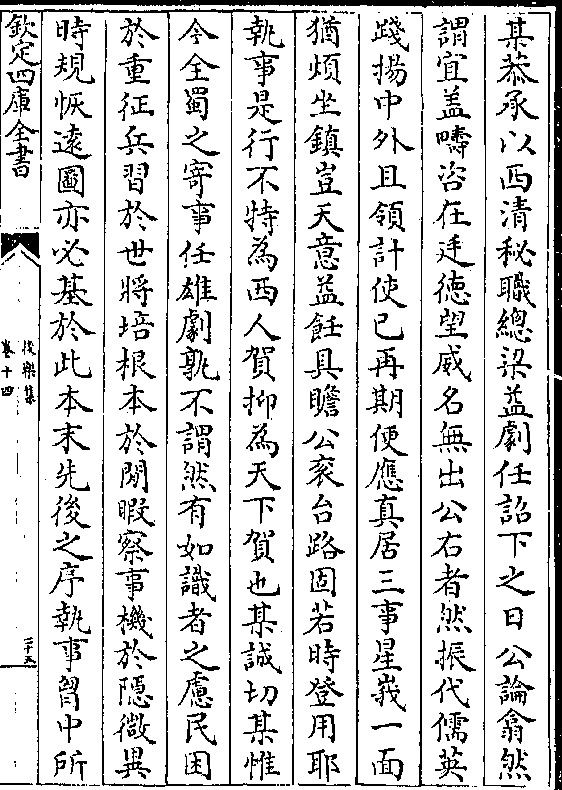 某恭承以西清秘職總梁益劇任詔下之日公論翕然
謂宜盖疇咨在廷德望威名無出公右者然振代儒英
踐揚中外且領計使已再期便應真居三事星峩一面
猶煩坐鎮豈天意益飪具瞻公衮台路固若時登用耶
執事是行不特為西人賀抑為天下賀也某誠切某惟
今全蜀之寄事任雄劇孰不謂然有如識者之慮民困
於重征兵習於世將培根本於閒暇察事機於隱微異
時規恢遠圖亦必基於此本末先後之序執事胷中所
欽定四庫全書
後樂集
卷十四
二十五